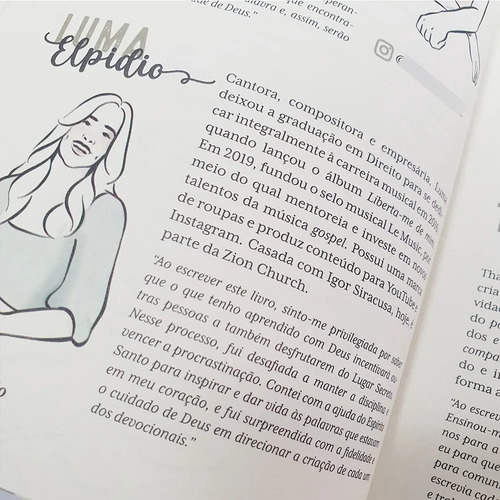 peran-
que encontra-
palavra e, assim, serão
de de Deus."
@
LUMA
Elpidio
Cantora, compositora e empresária, Luma
deixou a graduação em Direito para se dedi-
car integralmente à carreira musical em 2016,
quando lançou o álbum Liberta-me de mim.
Em 2019, fundou o selo musical Le Music, por
meio do qual mentoreia e investe em novos
talentos da música gospel. Possui uma marca
de roupas e produz conteúdo para YouTube e
Instagram. Casada com Igor Siracusa, hoje, é
parte da Zion Church.
"Ao escrever este livro, sinto-me privilegiada por saber
que o que tenho aprendido com Deus incentivará ou-
tras pessoas a também desfrutarem do Lugar Secreto.
Nesse processo, fui desafiada a manter a disciplina e
vencer a procrastinação. Contei com a ajuda do Espírito
Santo para inspirar e dar vida às palavras que estavam
em meu coração, e fui surpreendida com a fidelidade e
o cuidado de Deus em direcionar a criação de cada um
dos devocionais."
Tha
cria
vidad
do p
dos e
compo
do e i
forma a
"Ao escre
Ensinou-m
nos para a
eu para qu
para comu
escrevia cad
e tro